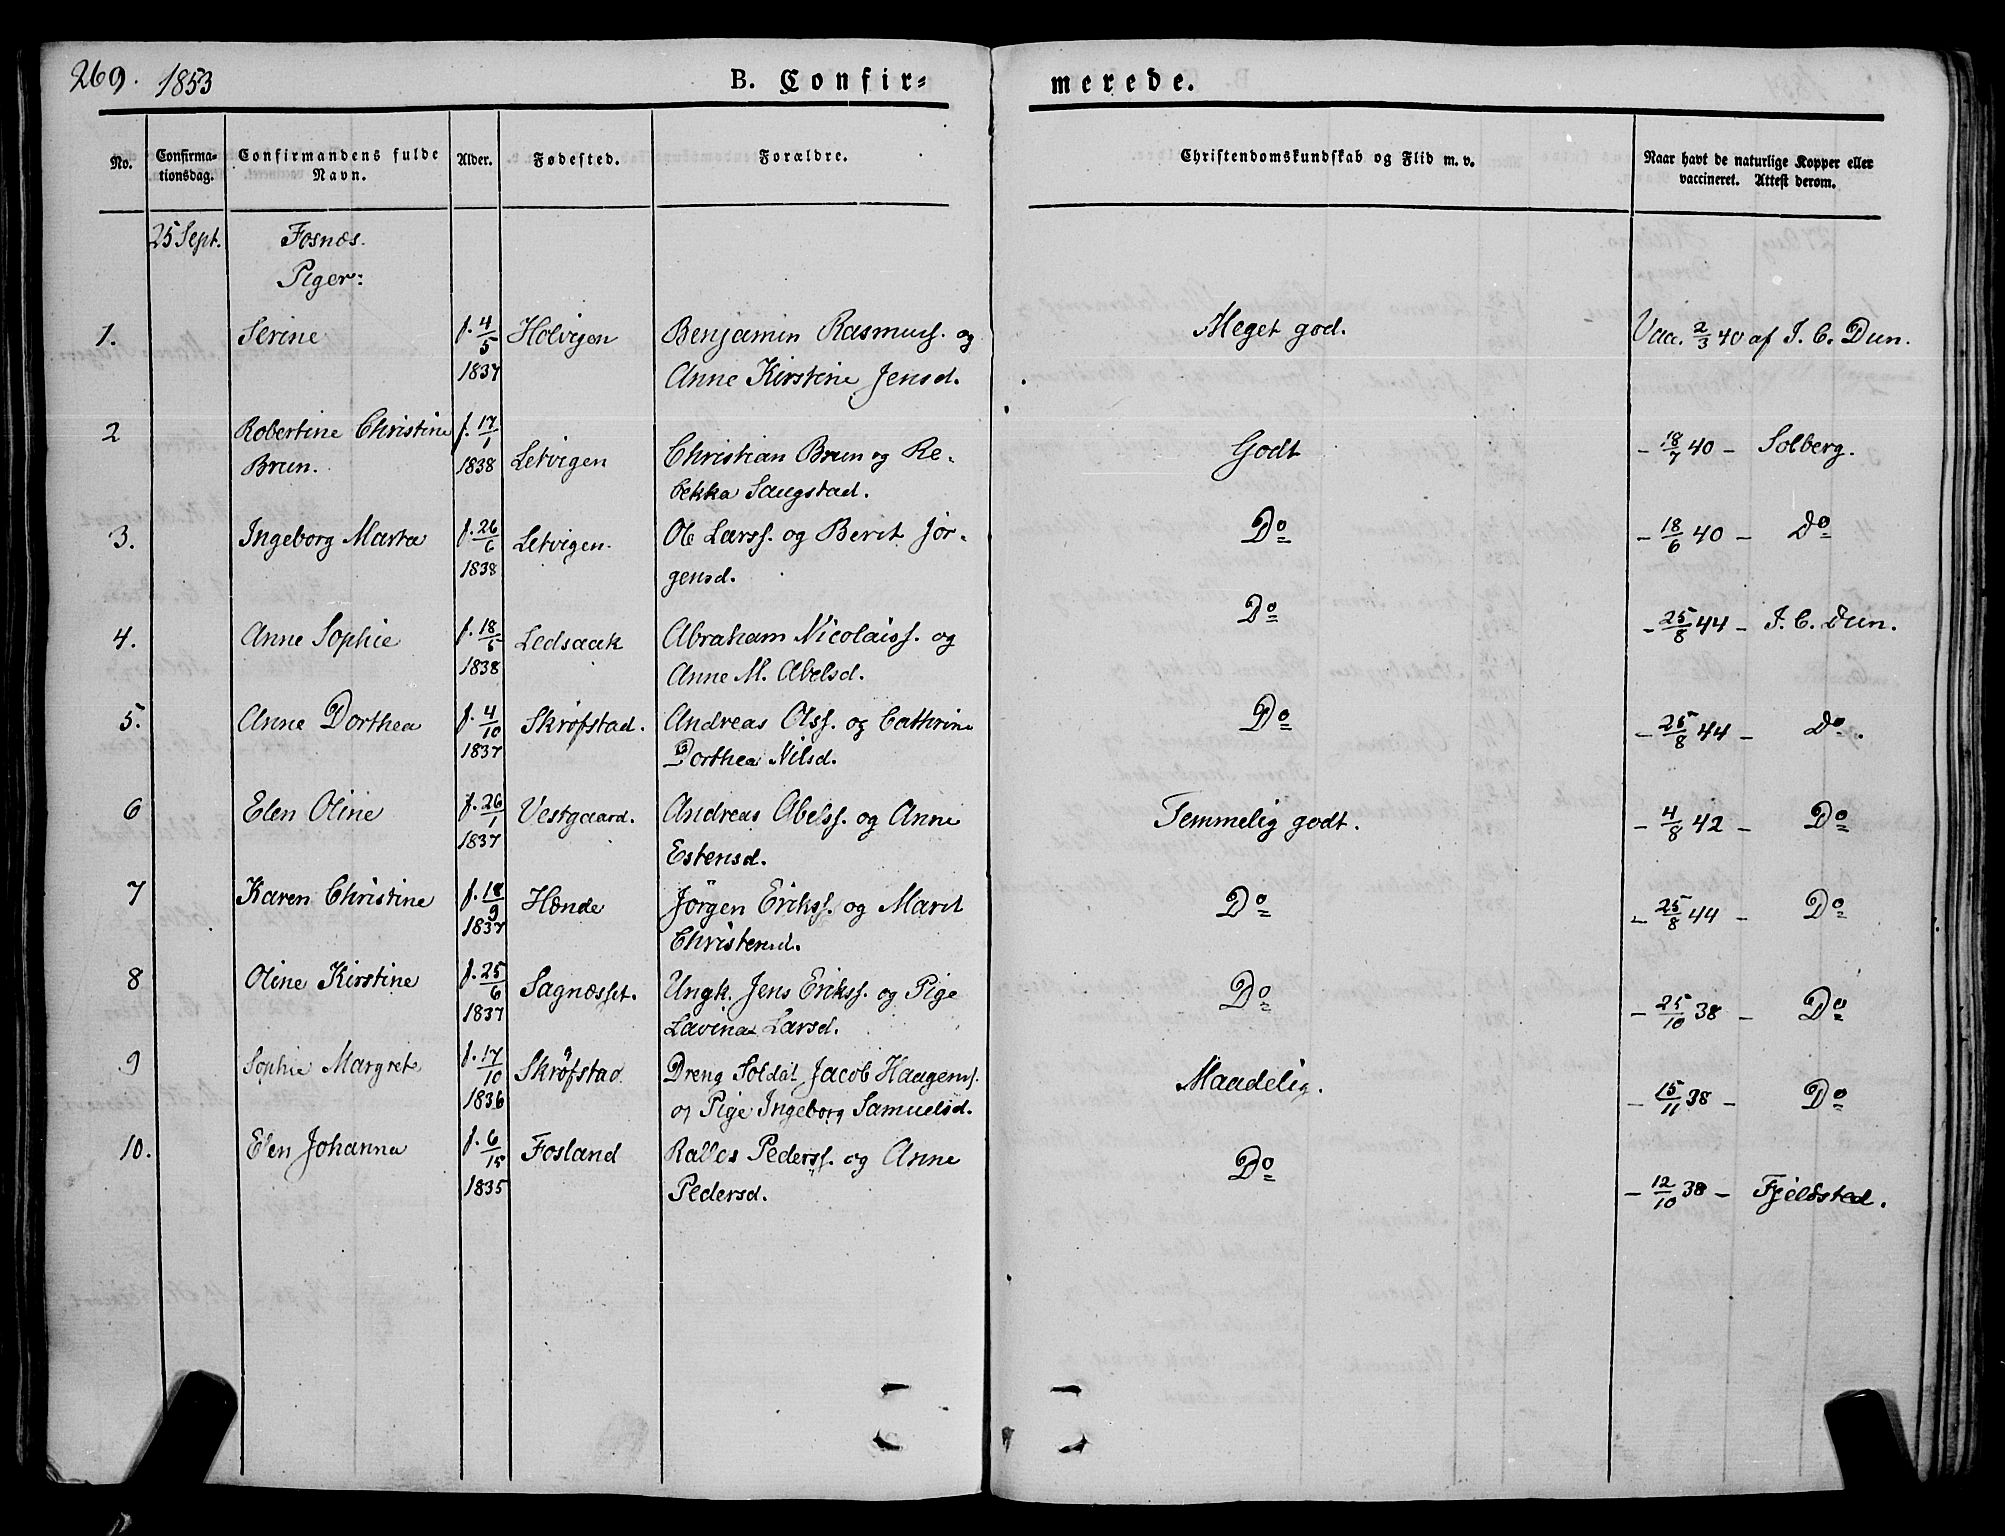 269. 1853
B. Confir=
merede.
No. Confirma=
tionsdag. Confirmandens fulde
Navn. Alder. Fødested. Forældre. Christendomskundskab og Flid m. v. Naar havt de naturlige Kopper eller
vaccineret. Attest derom.
25 Sept. Fosnæs.
Piger:
1. Serine f. 4/5 Holvigen Benjamin Rasmuss. og Meget god. Vac. 2/3 40 af J. C. Dun.
1837 Anne Kirstine Jensd.
2 Robertine Christine f. 17/1
Brun. 1838 Letvigen Christian Brun og Re- Godt - 18/7 40 - Solberg.
bekka Saugstad.
3. Ingeborg Marta f. 26/6 Letvigen. Ole Larss. og Berit Jør- Do - 18/6 40 - Do
1838 gensd.
4. Anne Sophie f. 18/6 Ledsaak Abraham Nicolaiss. og Do - 25/8 44 - J. C. Dun.
1838 Anne M. Abelsd.
5. Anne Dorthea f. 4/10 Skrøfstad. Andreas Olss. og Cathrine Do - 25/8 44 - Do.
1837 Dorthea Nilsd.
6 Elen Oline f. 26/1 Vestgaard. Andreas Abelss. og Anne Temmelig godt. - 4/8 42 - Do
1837 Estensd.
7 Karen Christine f. 18/9 Hænde Jörgen Erikss. og Marit Do - 25/8 44 - Do
1837 Christensd.
8 Oline Kirstine f. 25/6 Sagnæsset. Ungk. Jens Erikss. og Pige Do - 25/10 38 - Do
1837 Lavina Larsd.
9 Sophie Margrete f. 17/10 Skrøfstad Dreng Soldat Jacob Haagens. Maadelig. - 15/11 38 - Do
1836 og Pige Ingeborg Samuelsd.
10. Elen Johanna f. 6/15 Fosland Pederss. og Anne Do - 12/10 38 - Fjeldstad.
1835 Pedersd.